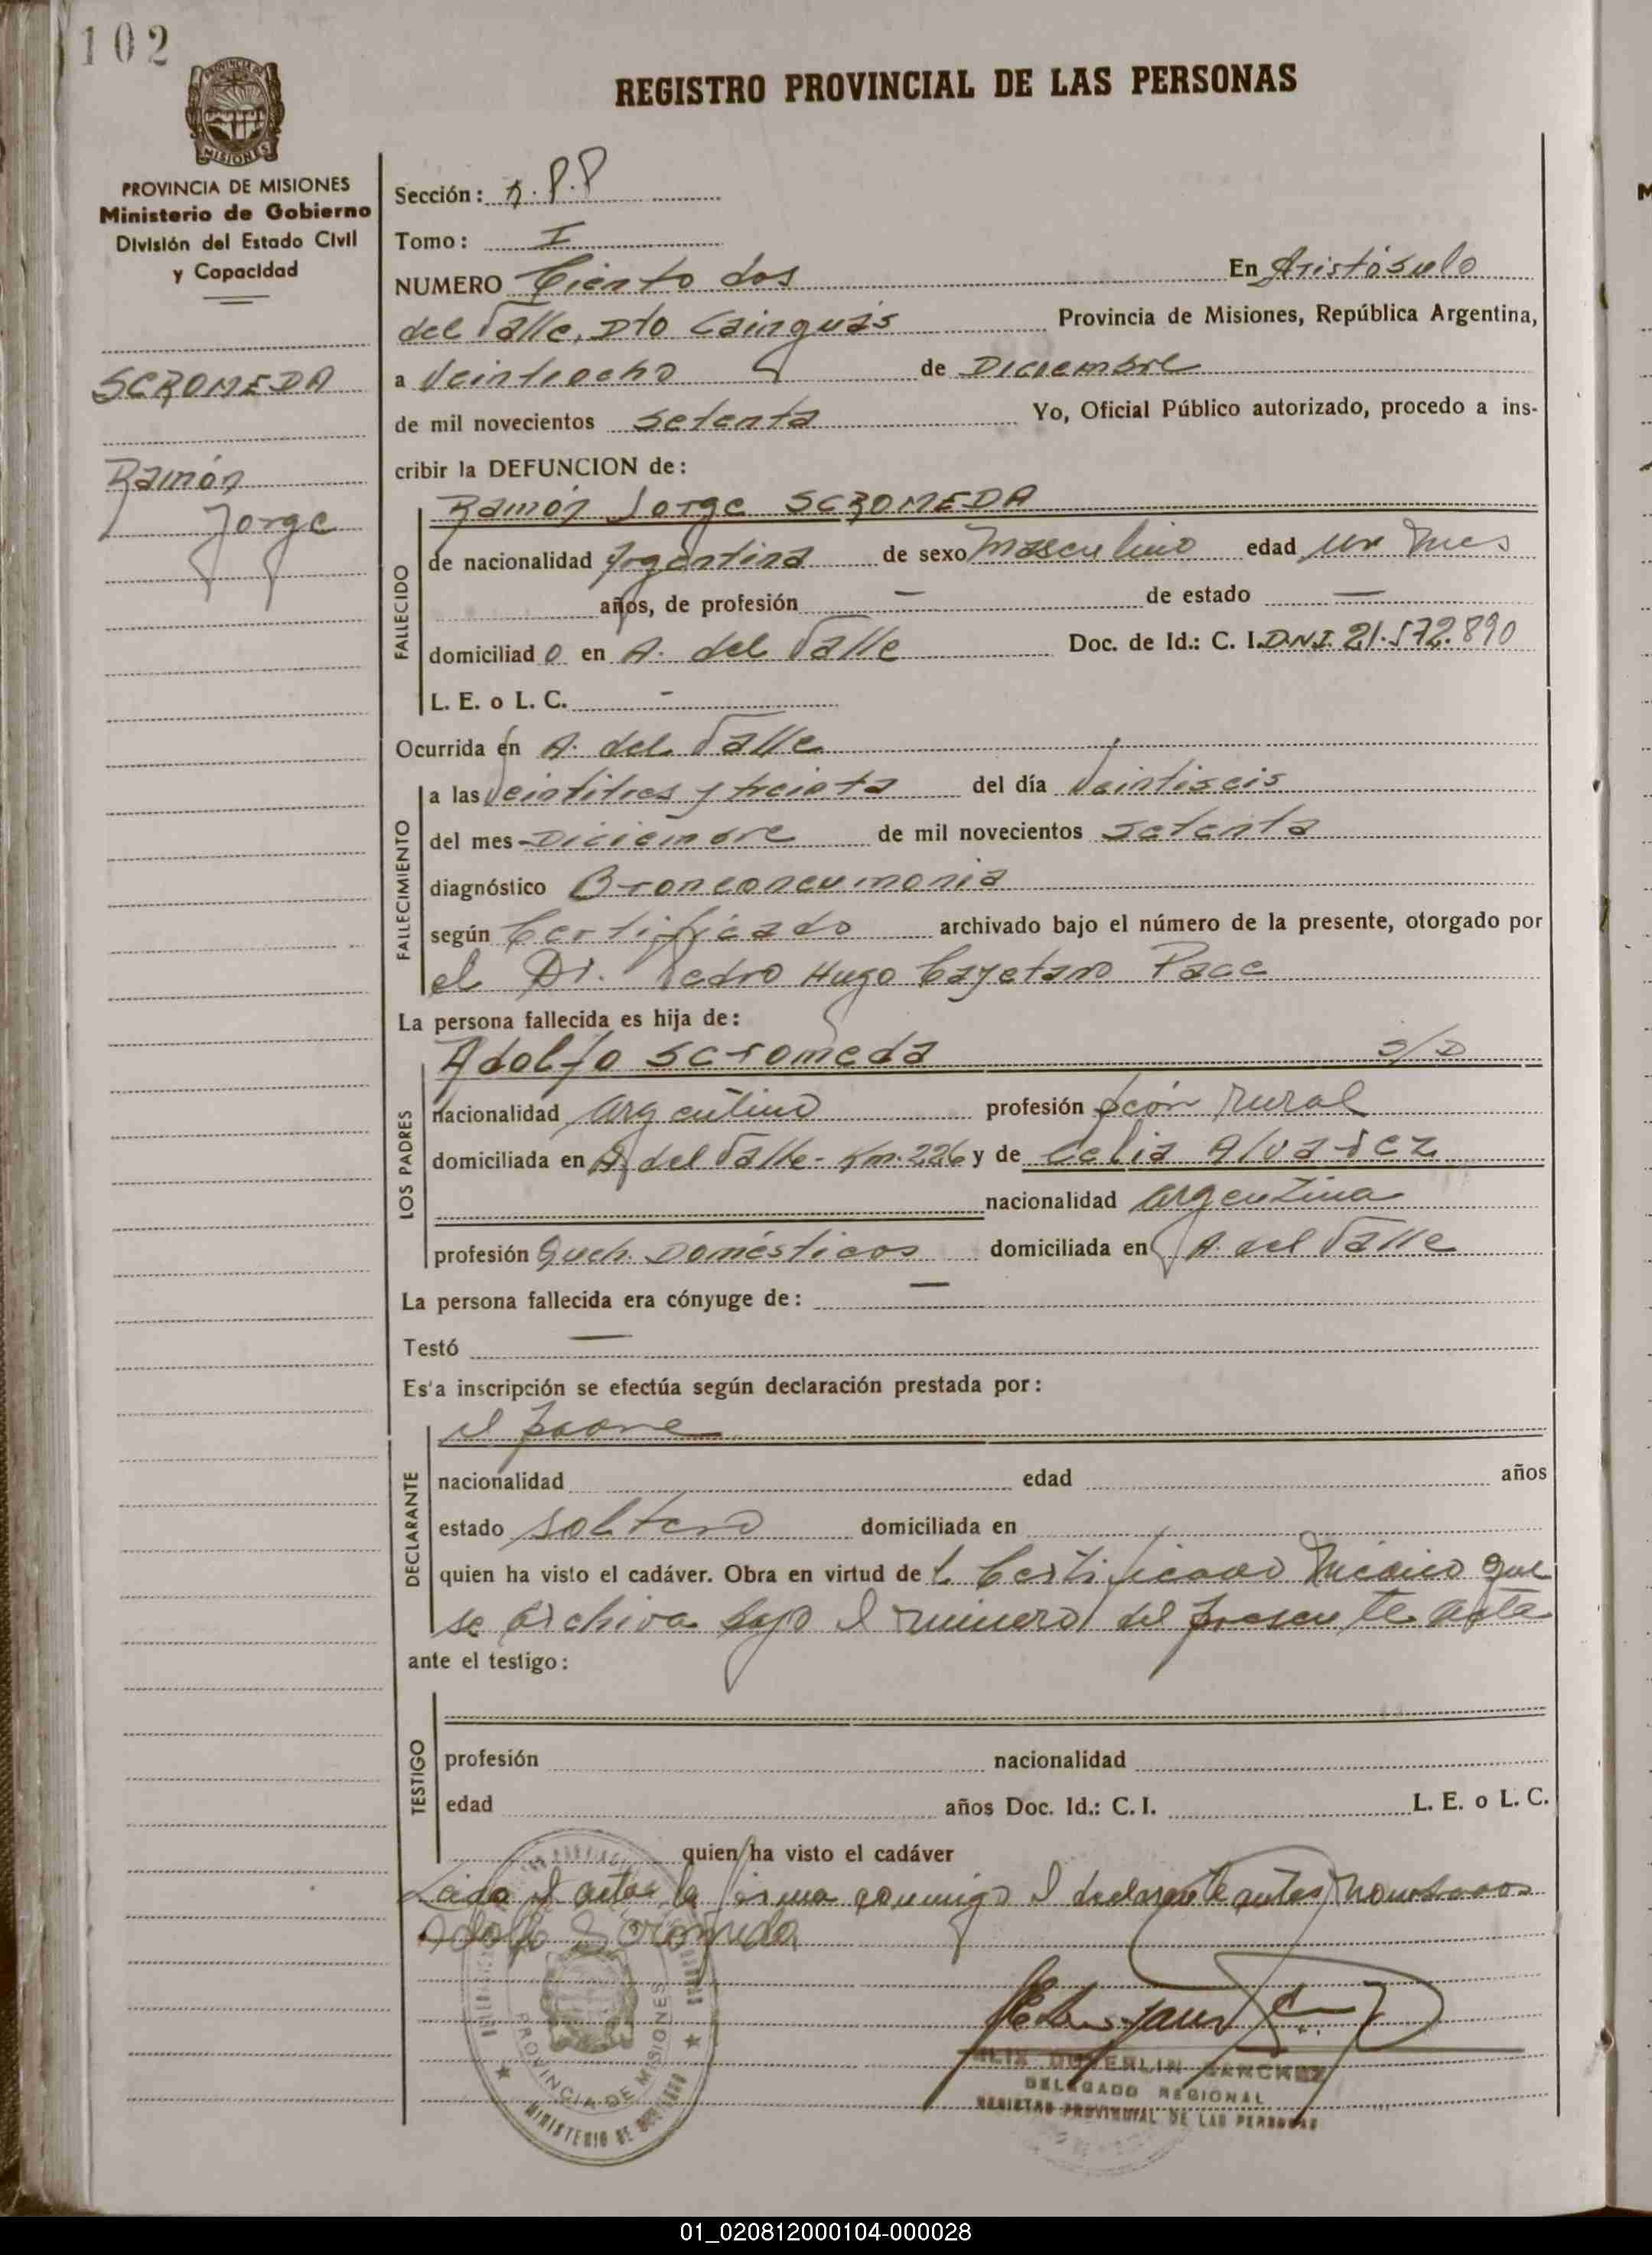 102
PROVINCIA DE MISIONES
REGISTRO PROVINCIAL DE LAS PERSONAS
PROVINCIA DE MISIONES
Ministerio de Gobierno
División del Estado Civil
y Capacidad
SCROMEDA
Ramón
Jorge
Sección: R.P.P
Tomo: I
NUMERO Ciento dos En Aristóbulo
del Valle, Dto Cainguás Provincia de Misiones, República Argentina,
a Veintiocho de Diciembre
de mil novecientos setenta Yo, Oficial Público autorizado, procedo a ins-
cribir la DEFUNCION de:
FALLECIDO
Ramón Jorge SCROMEDA
de nacionalidad Argentina de sexo Masculino edad un mes
años, de profesión — de estado —
domiciliad o en A. del Valle Doc. de Id.: C. I. D.N.I. 21.572.890
L. E. o L. C. -
Ocurrida en A. del Valle
FALLECIMIENTO
a las Veintitres y treinta del día Veintiseis
del mes Diciembre de mil novecientos setenta
diagnóstico Bronconeumonia
según Certificado archivado bajo el número de la presente, otorgado por
el Dr. Pedro Hugo Cayetano Pace
La persona fallecida es hija de:
LOS PADRES
Adolfo Scromeda s/D
nacionalidad argentino profesión peón rural
domiciliada en A. del Valle - Km. 226 y de Celia Alvarez
nacionalidad argentina
profesión Queh. Domésticos domiciliada en A. del Valle
La persona fallecida era cónyuge de: —
Testó —
Es'a inscripción se efectúa según declaración prestada por:
DECLARANTE
el padre
nacionalidad edad años
estado soltero domiciliada en
quien ha visto el cadáver. Obra en virtud de l Certificado Médico que
se archiva bajo el número del presente acta
ante el testigo:
TESTIGO
profesión nacionalidad
edad años Doc. Id.: C. I. L. E. o L. C.
quien ha visto el cadáver
Leida el acta la firma conmigo el declarante antes nombrado
Adolfo Scromeda
PROVINCIA DE MISIONES
MINISTERIO DE GOBIERNO
SANCHEZ
DELEGADO REGIONAL
REGISTRO PROVINCIAL DE LAS PERSONAS
01_020812000104-000028